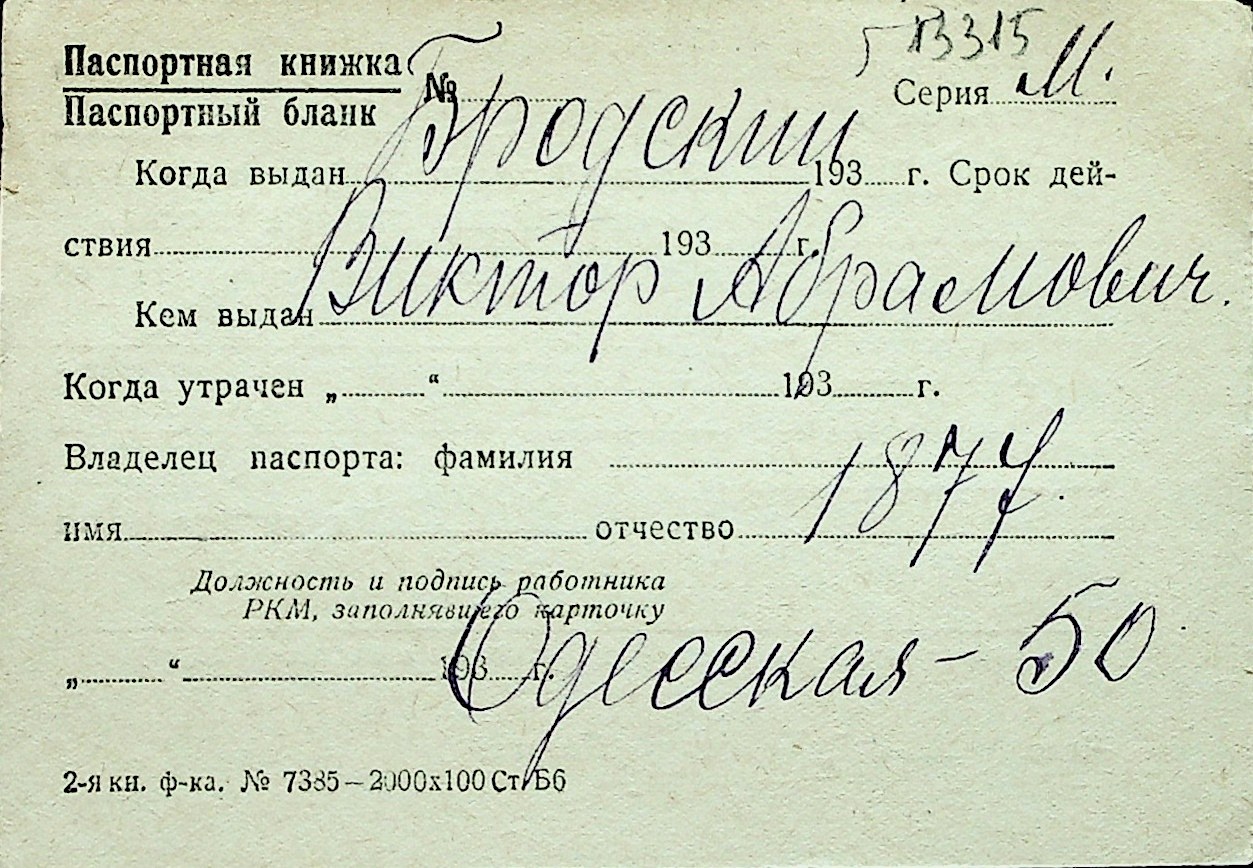 13315
Паспортная книжка
Паспортный бланк
№
Серия М.
Бродский
Когда выдан 193 г. Срок дей-
ствия 193 г.
Виктор Абрамович.
Кем выдан
Когда утрачен „ “ 193 г.
Владелец паспорта: фамилия
1877
имя отчество
Должность и подпись работника
РКМ, заполнявшего карточку
Одесская – 50
„ “ 193 г.
2-я кн. ф-ка. № 7385–2000х100 Ст. Б6